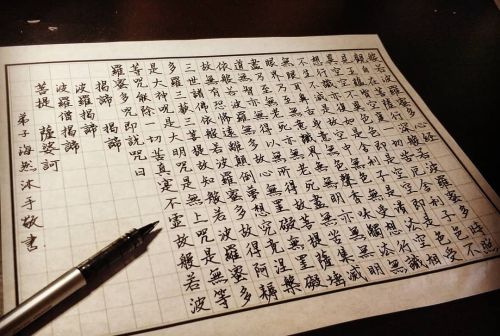 般若波羅蜜多心經
觀自在菩薩行深般若波羅蜜多時照
見五蘊皆空度一切苦厄舍利子色不
異空空不異色色即是空空即是色受
想行識亦復如是舍利子是諸法空相
不生不滅不垢不淨不增不減是故空中無色無受想行識
無眼耳鼻舌身意無色聲香味觸法無
眼界乃至無意識界無無明亦無無明
盡乃至無老死亦無老死盡無苦集滅
道無智亦無得以無所得故菩提薩埵
依般若波羅蜜多故心無罣礙無罣礙
故無有恐怖遠離顛倒夢想究竟涅槃
三世諸佛依般若波羅蜜多故得阿耨
多羅三藐三菩提故知般若波羅蜜多
是大神咒是大明咒是無上咒是無等
等咒能除一切苦真實不虛故說般若波
羅蜜多咒即說咒曰
揭諦 揭諦
波羅揭諦
波羅僧揭諦
菩提 薩婆訶
弟子海然沐手敬書